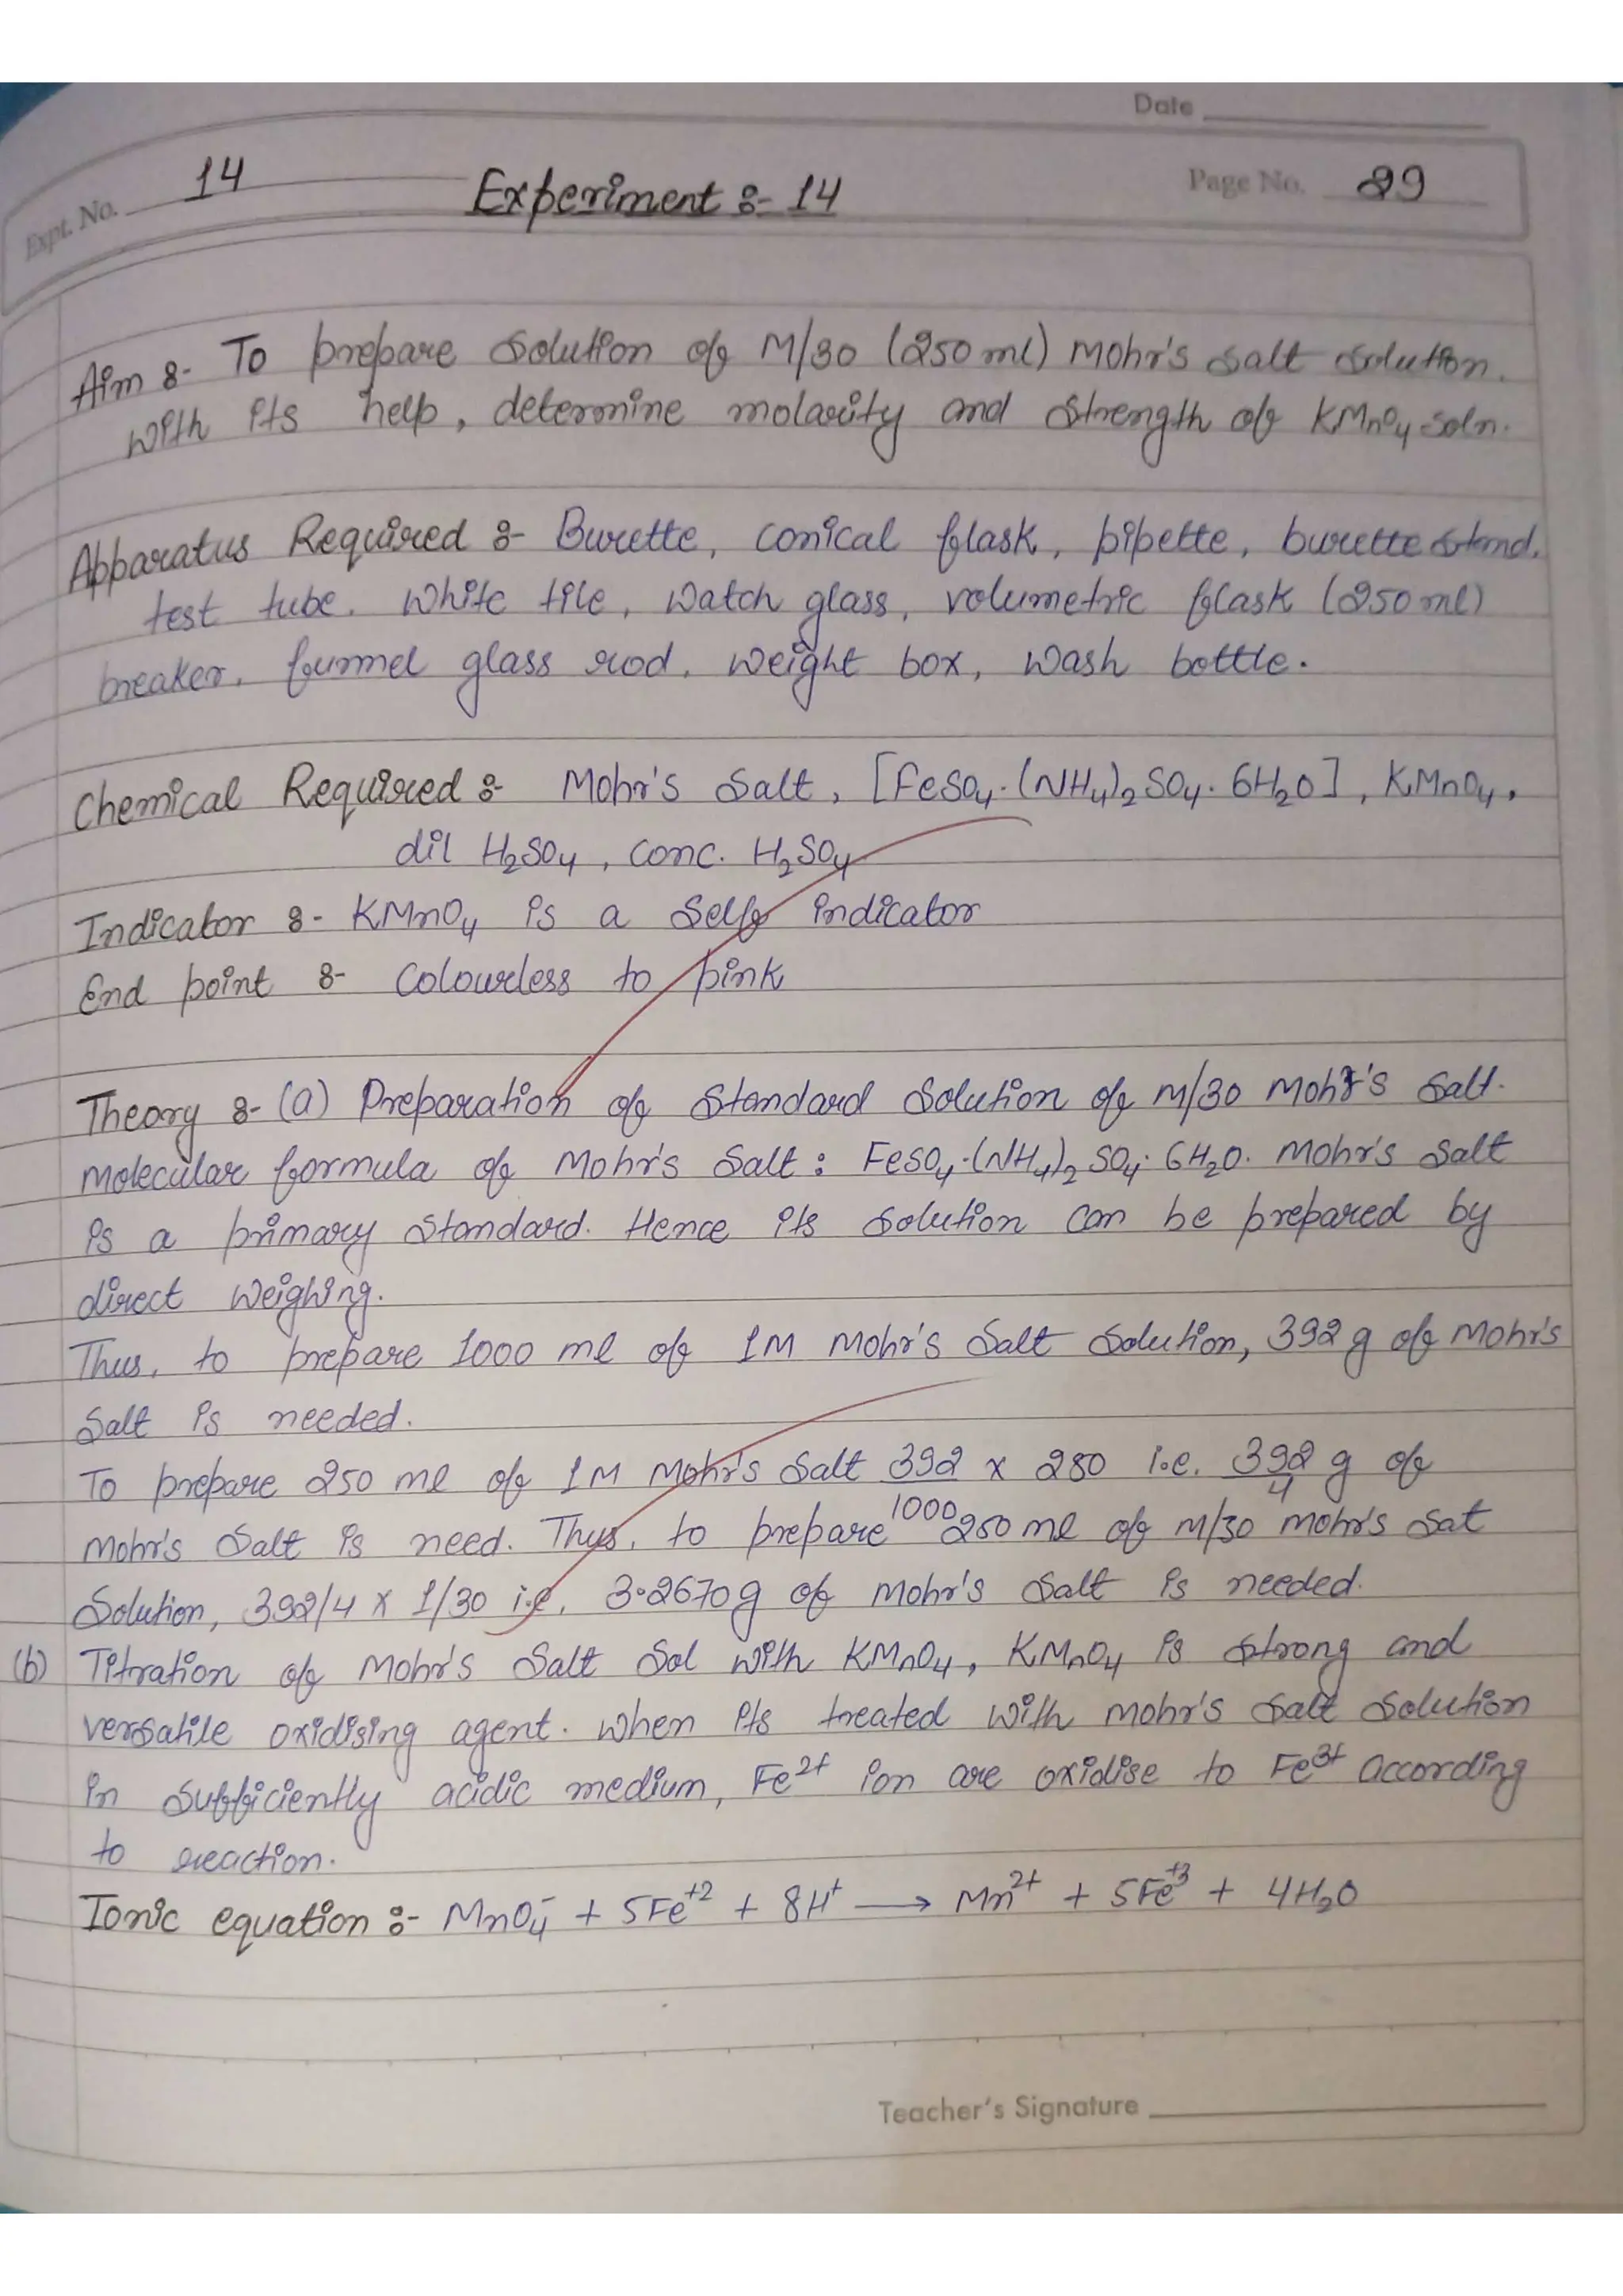 Date
Expt. No. 14
Experiment :- 14
Page No. 29
Aim :- To prepare solution of M/30 (250 ml) Mohr's salt solution.
with its help, determine molarity and strength of KMnO4 soln.
Apparatus Required :- Burette, conical flask, pipette, burette stand,
test tube. White tile, watch glass, volumetric flask (250 ml)
breaker, funnel glass rod, weight box, wash bottle.
Chemical Required :- Mohr's salt, [FeSO4.(NH4)2 SO4. 6H2O], KMnO4,
dil H2SO4, conc. H2SO4
Indicator :- KMnO4 is a self indicator
End point :- Colourless to pink
Theory :- (a) Preparation of standard solution of M/30 Mohr's salt.
molecular formula of Mohr's salt : FeSO4.(NH4)2 SO4. 6H2O. Mohr's salt
is a primary standard. Hence its solution can be prepared by
direct weighing.
Thus, to prepare 1000 ml of 1M Mohr's salt solution, 392 g of Mohr's
salt is needed.
To prepare 250 ml of 1M Mohr's salt 392/1000 x 250 i.e. 392/4 g of
Mohr's salt is need. Thus, to prepare 250 ml of M/30 Mohr's sat
solution, 392/4 x 1/30 i.e, 3.2670g of Mohr's salt is needed.
(b) Titration of Mohr's salt sol with KMnO4, KMnO4 is strong and
versatile oxidising agent. when its treated with Mohr's salt solution
in sufficiently acidic medium, Fe2+ ion are oxidise to Fe3+ according
to reaction.
Ionic equation :- MnO4- + 5Fe+2 + 8H+ → Mn2+ + 5Fe+3 + 4H2O
Teacher's Signature